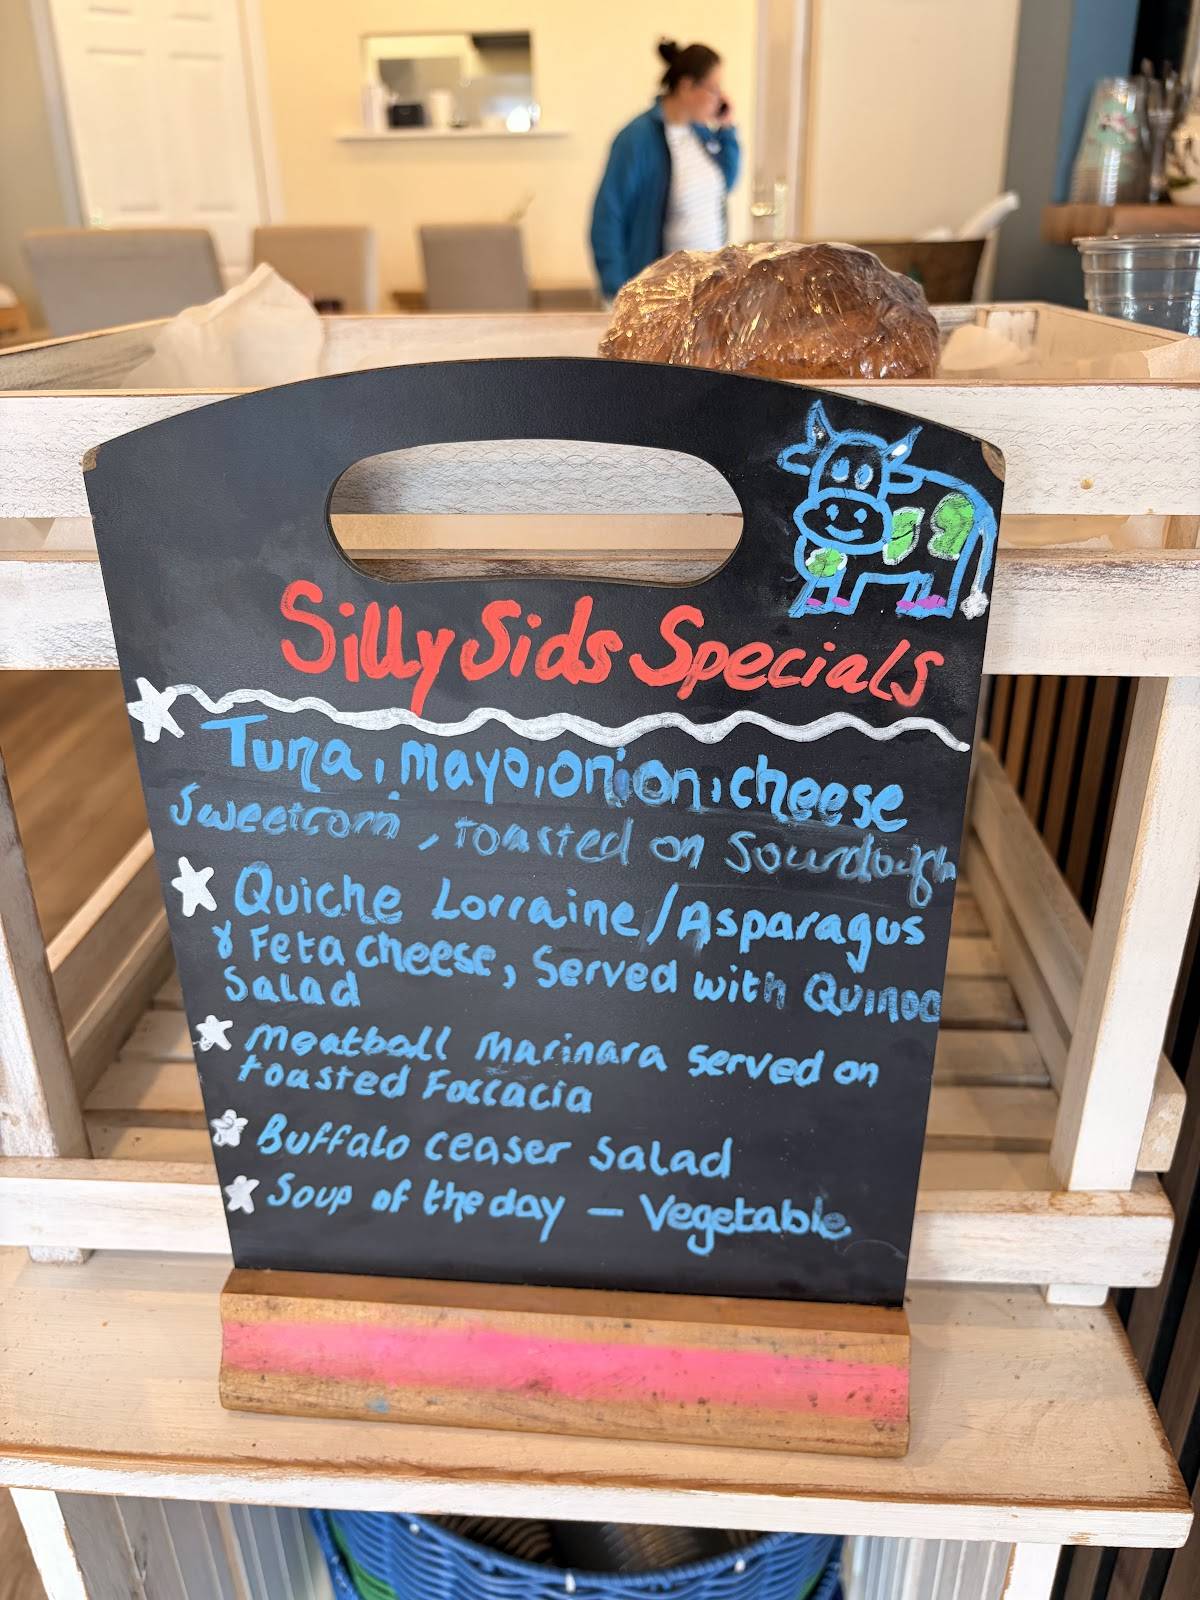 Silly Sids Specials
Tuna, mayo, onion, cheese
Sweetcorn, toasted on Sourdough
Quiche Lorraine/Asparagus
& Feta cheese, Served with Quinoa
Salad
Meatball Marinara Served on
toasted Foccacia
Buffalo ceaser Salad
Soup of the day – Vegetable